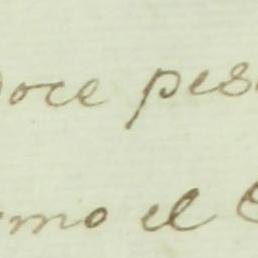 Doce pes
mo el